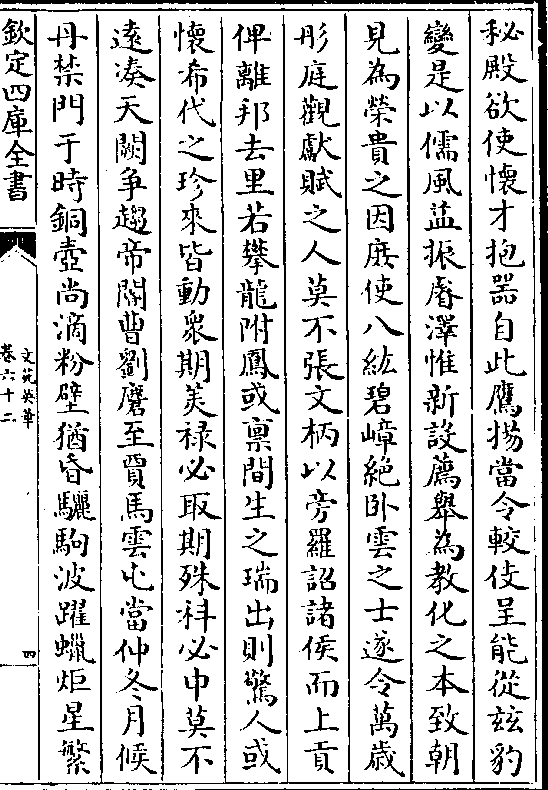 秘殿欲使懷才抱器自此鷹揚當令較伎呈能從兹豹
變是以儒風益振睿澤惟新設薦舉為教化之本致朝
見為榮貴之因庶使八紘碧嶂絶卧雲之士遂令萬歳
彤庭觀獻賦之人莫不張文柄以旁羅詔諸侯而上貢
俾離邦去里若攀龍附鳳或禀間生之瑞出則驚人或
懷希代之珍來皆動衆期美禄必取期殊科必中莫不
遠凑天闕爭趨帝閽曹劉麕至賈馬雲屯當仲冬月候
丹禁門于時銅壺尚滴粉壁猶昏驪駒波躍蠟炬星繁
欽定四庫全書
文苑英華
卷六十二
四